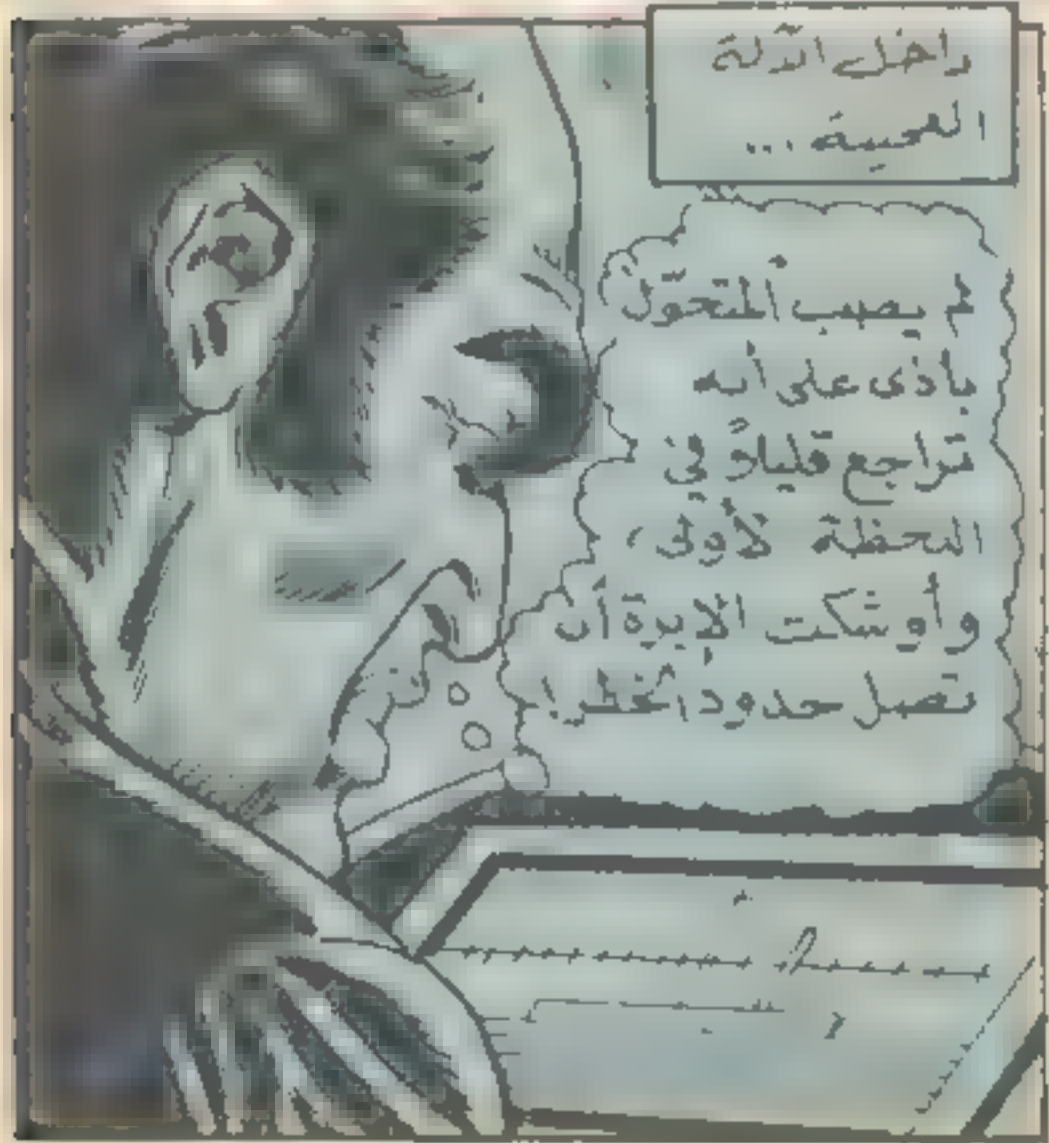 داخل الآلة
العجيبة...
لم يصب المتحوّل
بأذى على أنه
تراجع قليلاً في
اللحظة الأولى،
وأوشكت الإبرة أن
تصل حدود الخطر!